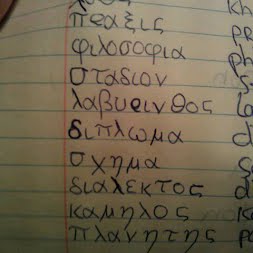 πραξις
φιλοσοφια
σταδιον
λαβυρινθος
διπλωμα
σχημα
διαλεκτος
καμηλος
πλανητης